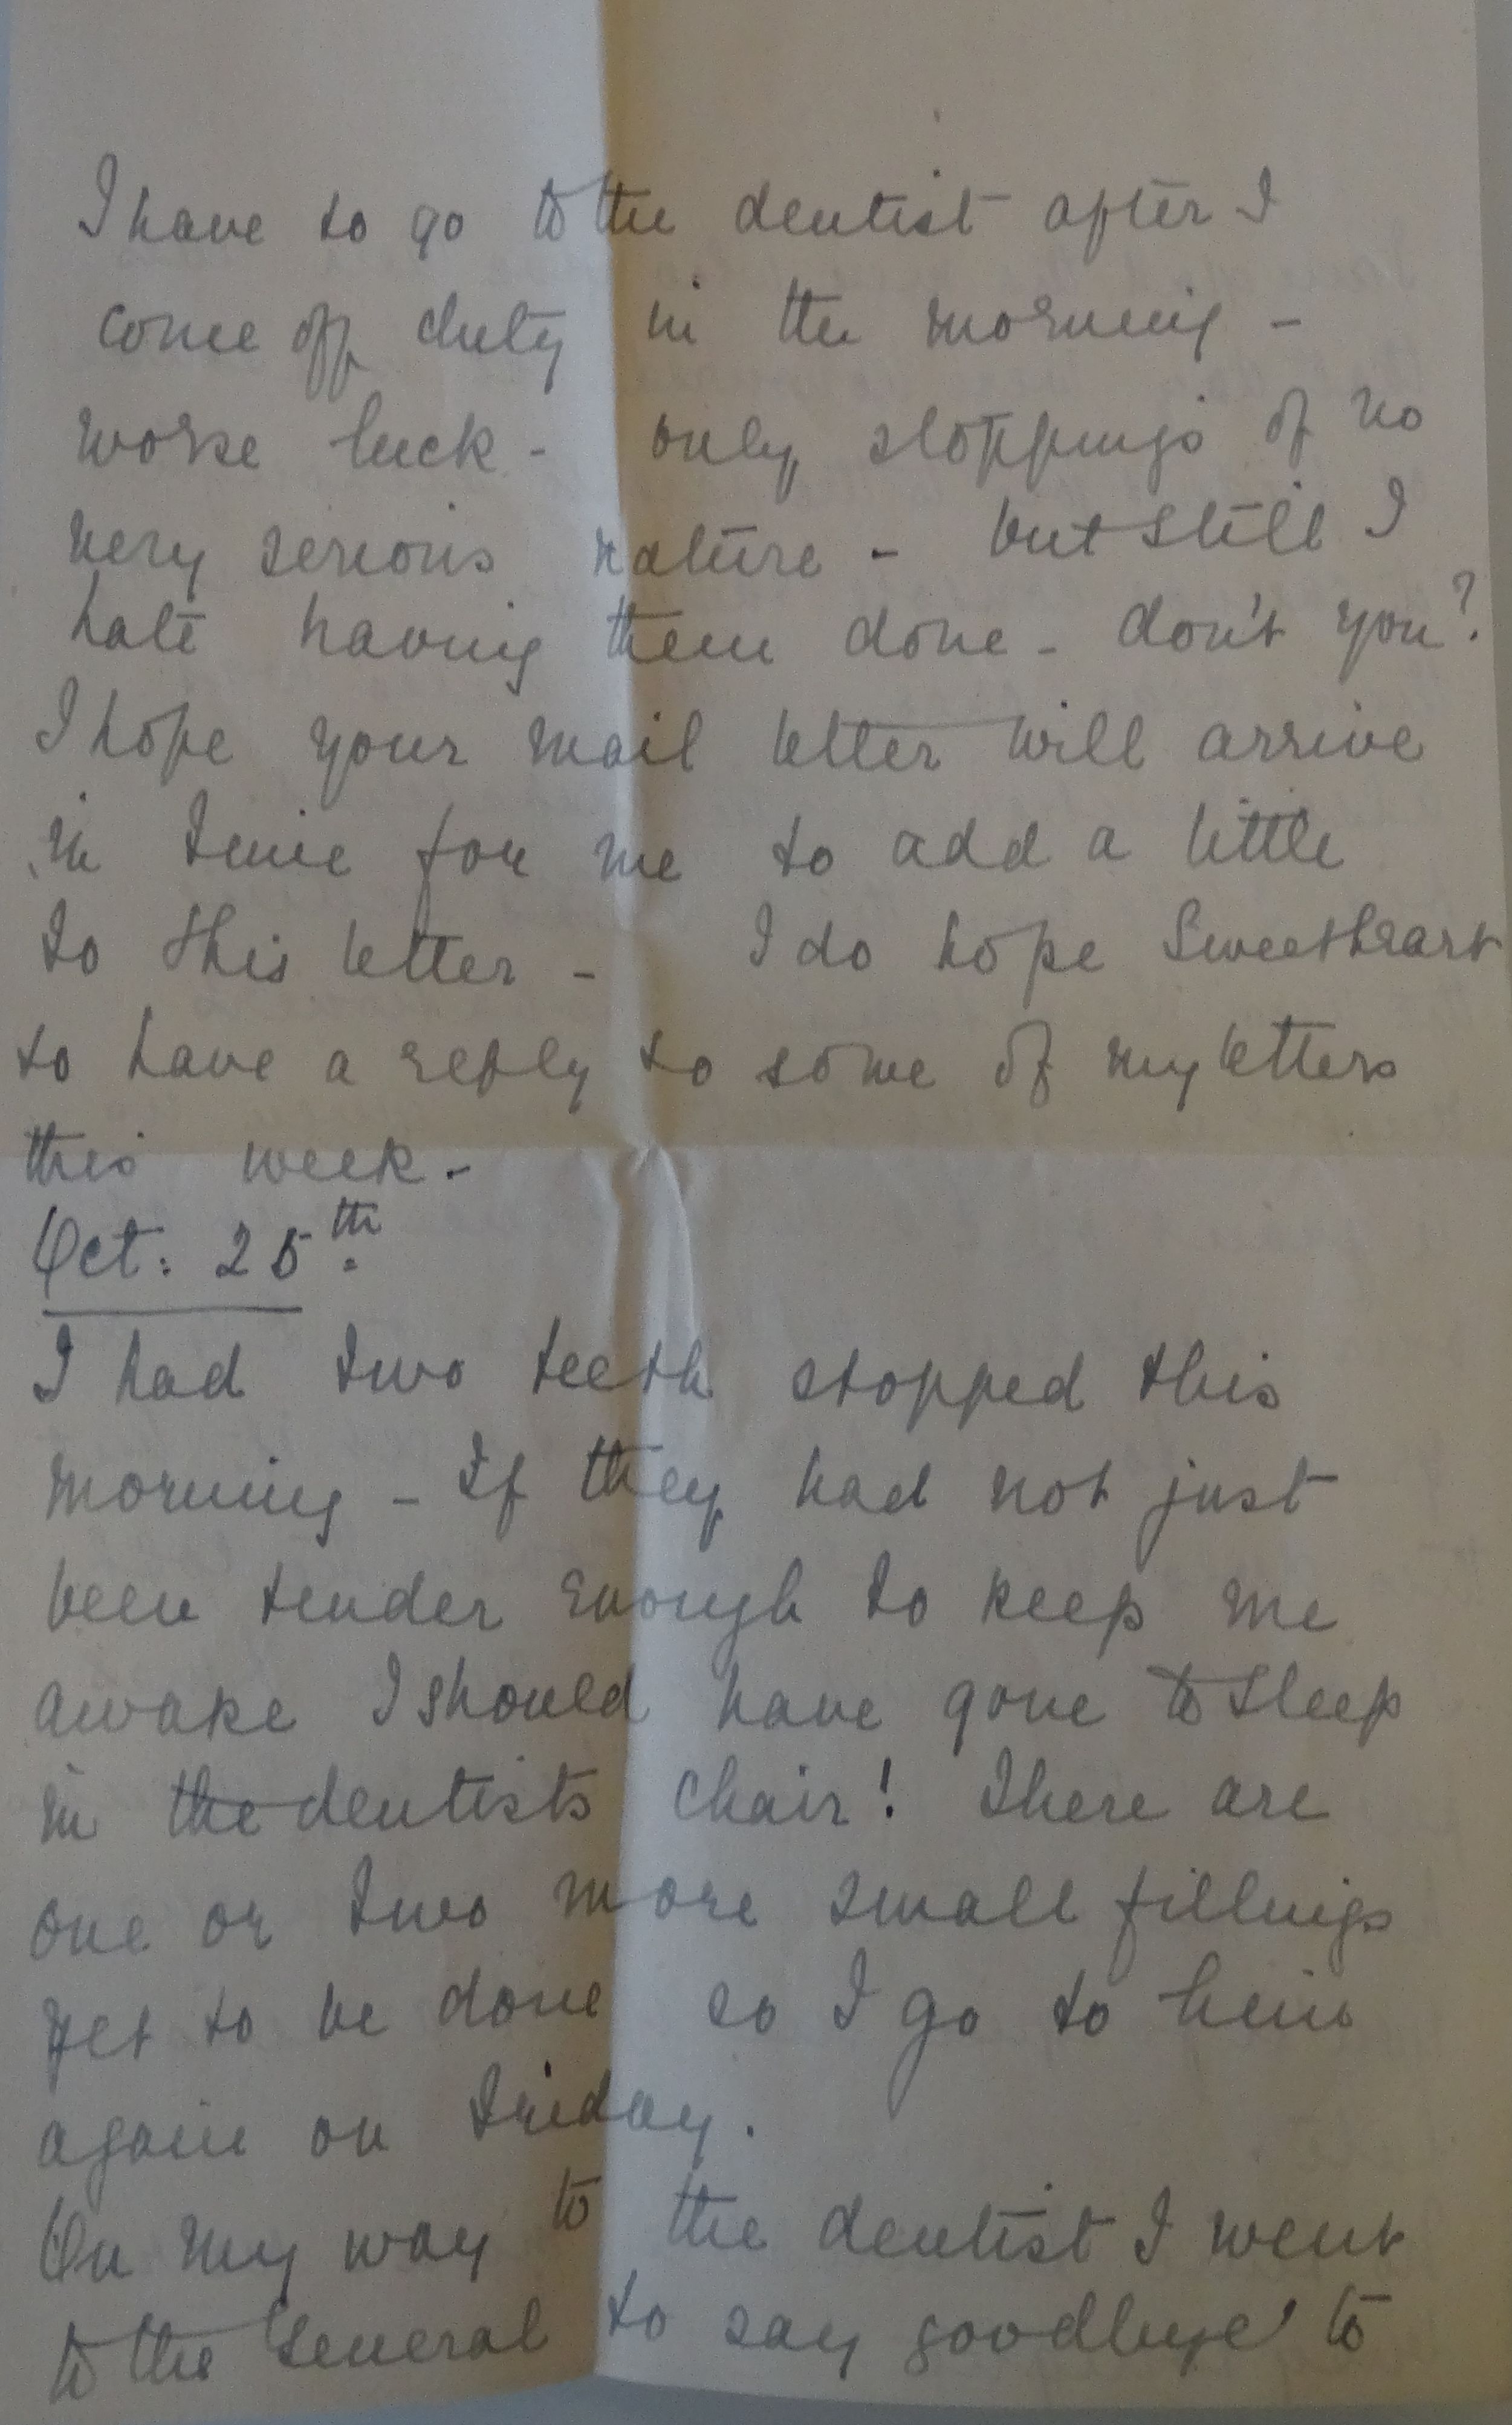 I have to go to the dentist after I
come off duty in the morning -
worse luck - only stoppings of no
very serious nature - but still I
hate having them done - don't you?
I hope your mail letter will arrive
in time for me to add a little
to this letter - I do hope Sweetheart
to have a reply to some of my letters
this week -
Oct: 25th
I had two teeth stopped this
morning - If they had not just
been tender enough to keep me
awake I should have gone to sleep
in the dentists chair! There are
one or two more small fillings
yet to be done so I go to him
again on Friday.
On my way to the dentist I went
to the General to say goodbye to